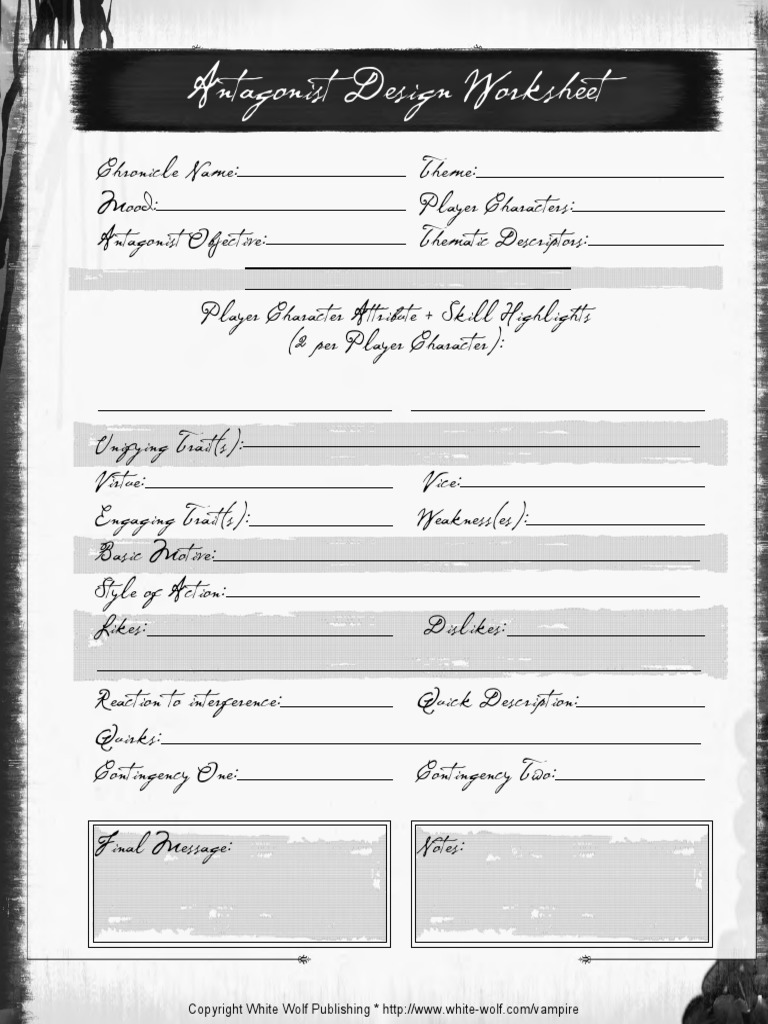 Antagonist Design Worksheet
Chronicle Name: Theme:
Mood: Player Characters:
Antagonist Objective: Thematic Descriptors:
Player Character Attribute + Skill Highlights
(2 per Player Character):
Unifying Trait(s):
Virtue: Vice:
Engaging Trait(s): Weakness(es):
Basic Motive:
Style of Action:
Likes: Dislikes:
Reaction to interference: Quick Description:
Quirks:
Contingency One: Contingency Two:
Final Message: Notes:
Copyright White Wolf Publishing * http://www.white-wolf.com/vampire